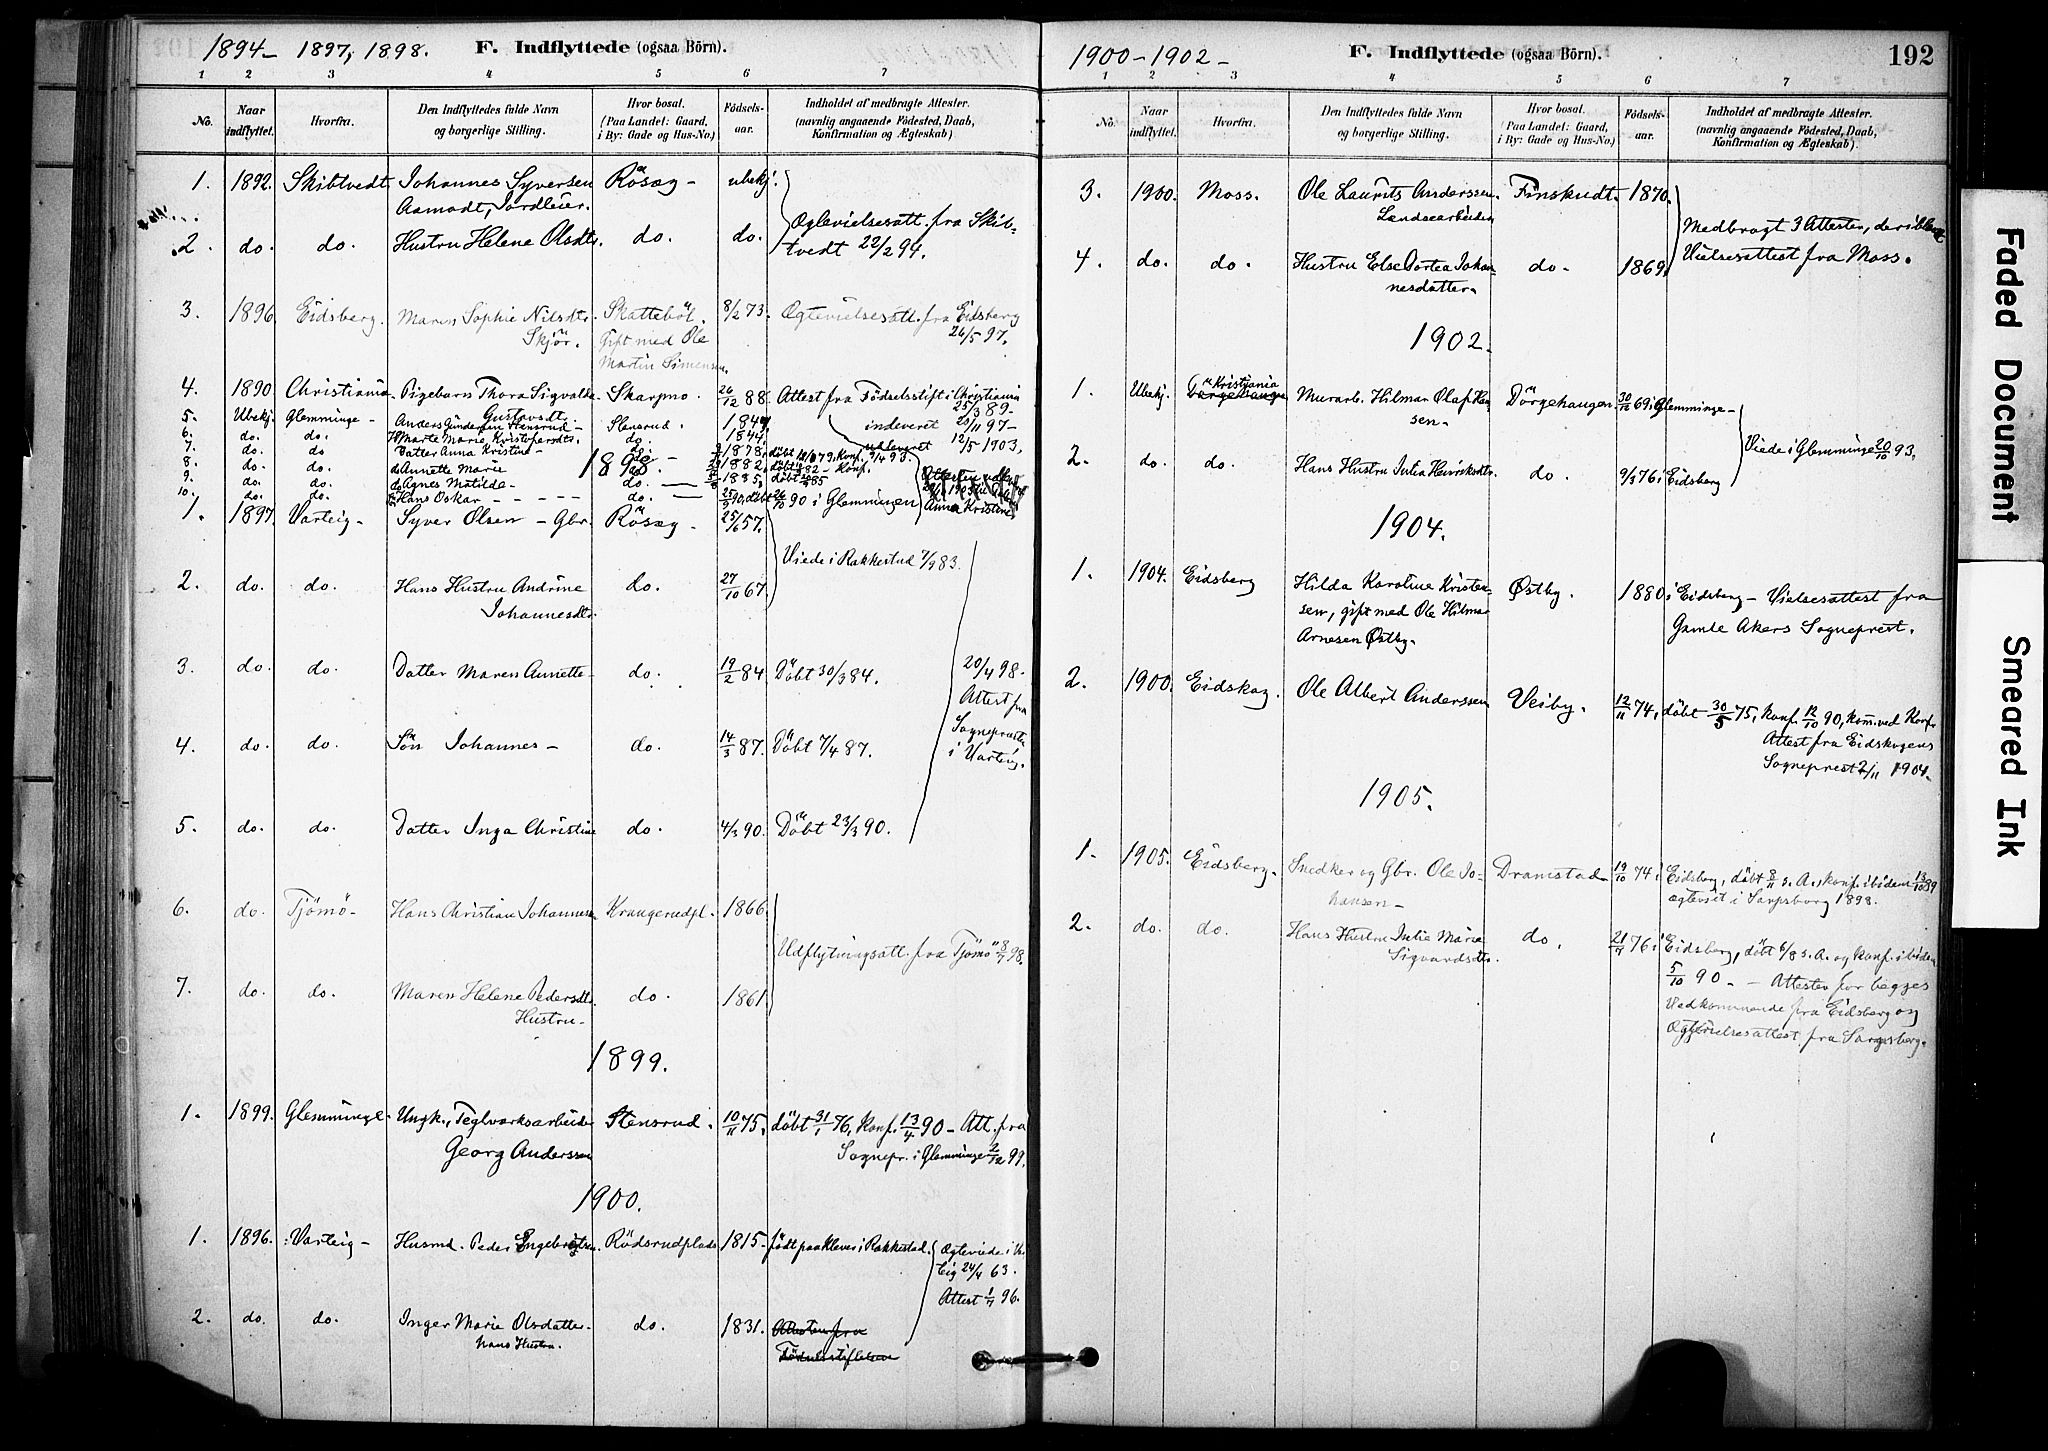 1894 - 1897, 1898.
F. Indflyttede (ogsaa Börn).
1 2 3 4 5 6 7
No. Naar indflyttet. Hvorfra. Den Indflyttedes fulde Navn og borgerlige Stilling. Hvor bosat. (Paa Landet: Gaard, i By: Gade og Hus-No.) Födsels-aar. Indholdet af medbragte Attester. (navnlig angaaende Födested, Daab, Konfirmation og Ægteskab)
1. 1892. Skibtvedt. Johannes Syversen Rösæg - ubekj.
Aamodt, Jordleier.
2. do. do. Hustru Helene Olsdtr. do. do. Ægtevielsesatt. fra Skib-
tvedt 22/2 94.
3. 1896. Eidsberg. Maren Sophie Nilsdtr. Skattebøl. 8/2 73. Ægtevielsesatt. fra Eidsberg
Skjör. Gift med Ole 26/5 97.
Martin Simensen.
4. 1890. Christiania. Pigebarn Thora Sigvalda Skarpno. 26/12 88. Attest fra Födselsstift i Christiania
Gustavsdtr. 25/3 89-
5. Ubekj. Glemminge - Anders Gundersen Stensrud - Stensrud. 1849. indeveret 23/11 97-
6. do. do. Marte Marie Kristofersdtr. do. 1844. udleveret 12/5 1903.
7. do. do Datter Anna Kristine - do. - 1878.
8. do. do. do Annette Marie do. 1882.
1898.
9. do. do. do Agnes Matilde - do. 1885.
10. do. do. Hans Oskar - - - - - do. 90 i Glemmingen Anna Kristine
1. 1897. Varteig - Syver Olsen - Gbr. Rösæg - 25/6 57.
Viede i Rakkestad 7/9 83.
2. do. do. Hans Hustru Andrine do. 27/10 67.
Johannesdtr.
3. do. do. Datter Maren Annette - do. 19/2 84 Döbt 30/3 84. 20/4 98.
Attest fra
Sogneprest
4. do. do. Sön Johannes - do. 14/3 87. Döbt 7/4 87. i Varteig.
5. do. do. Datter Inga Christine do. 4/3 90. Döbt 23/3 90.
6. do. Tjömö - Hans Christian Johannesen Krangerudpl. 1866.
Udflytningsatt. fra Tjömö 8/7 98.
7. do. do. Maren Helene Pedersdtr. do. 1861.
Hustru -
1899.
1. 1899. Glemminge - Ungk., Teglverksarbeider Stensrud. 10/11 75. döbt 31/1 76, Konf. 13/4 90 - Att. fra
Georg Anderssen Sognepr. i Glemminge 2/12 99.
1900.
1. 1896. Varteig - Husmd. Peder Engebretsen. Rödsrudplads 1815. födt paa Klever i Rakkestad. Ægteviede i Var-
teig 24/4 63.
Attest 1/4 96.
2. do. do. Inger Marie Olsdatter - do. 1831. Attesten fra
hans Hustru. Födselsstiftelsen
1900 - 1902 -
F. Indflyttede (ogsaa Börn).
192
1 2 3 4 5 6 7
No. Naar indflyttet. Hvorfra. Den Indflyttedes fulde Navn og borgerlige Stilling. Hvor bosat. (Paa Landet: Gaard, i By: Gade og Hus-No.) Födsels-aar. Indholdet af medbragte Attester. (navnlig angaaende Födested, Daab, Konfirmation og Ægteskab).
3. 1900. Moss. Ole Laurits Anderssen. Finskudt. 1870.
Landsearbeider Medbragt 3 Attester, deriblandt
4. do. do. Hustru Else Dortea Johan- do. 1869. Vielsesattest fra Moss.
nesdatter.
1902.
1. Ubekj. Kristiania Murarb. Hilmar Olaf Han- Dörgehaugen 30/12 69 i Glemminge -
sen -
Viede i Glemminge 20/10 93.
2. do. do. Hans Hustru Julia Henriksdtr. do. 9/3 76 i Eidsberg
1904.
1. 1904. Eidsberg Hilda Karoline Kristen- Østby. 1880 i Eidsberg - Vielsesattest fra
sen, gift med Ole Hilmar Gamle Akers Sogneprest.
Arnesen Østby.
2. 1900. Eidskog. Ole Albert Anderssen Veiby. 12/11 74, döbt 30/5 75, Konf. 12/10 90, kom. ved Konf.
Attest fra Eidskogens
Sogneprest 2/11 1904.
1905.
1. 1905. Eidsberg. Snedker og Gbr. Ole Jo- Dramstad 19/10 74 i Eidsberg, döbt 8/11 s. A., konf. ibidem 13/10 89
hansen - ægteviet i Sarpsborg 1898.
2. do. do. Hans Hustru Julie Marie do. 21/4 76 i Eidsberg, döbt 6/8 s. A. og konf. ibidem
Sigvardsdtr. 5/10 90. - Attester for begges
Vedkommende fra Eidsberg og
Ægtevielsesattest fra Sarpsborg.
Faded Document
Smeared Ink